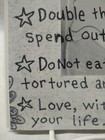 ☆ Double th
spend out
☆ Do Not eat
tortured a
☆ Love, wit
your life